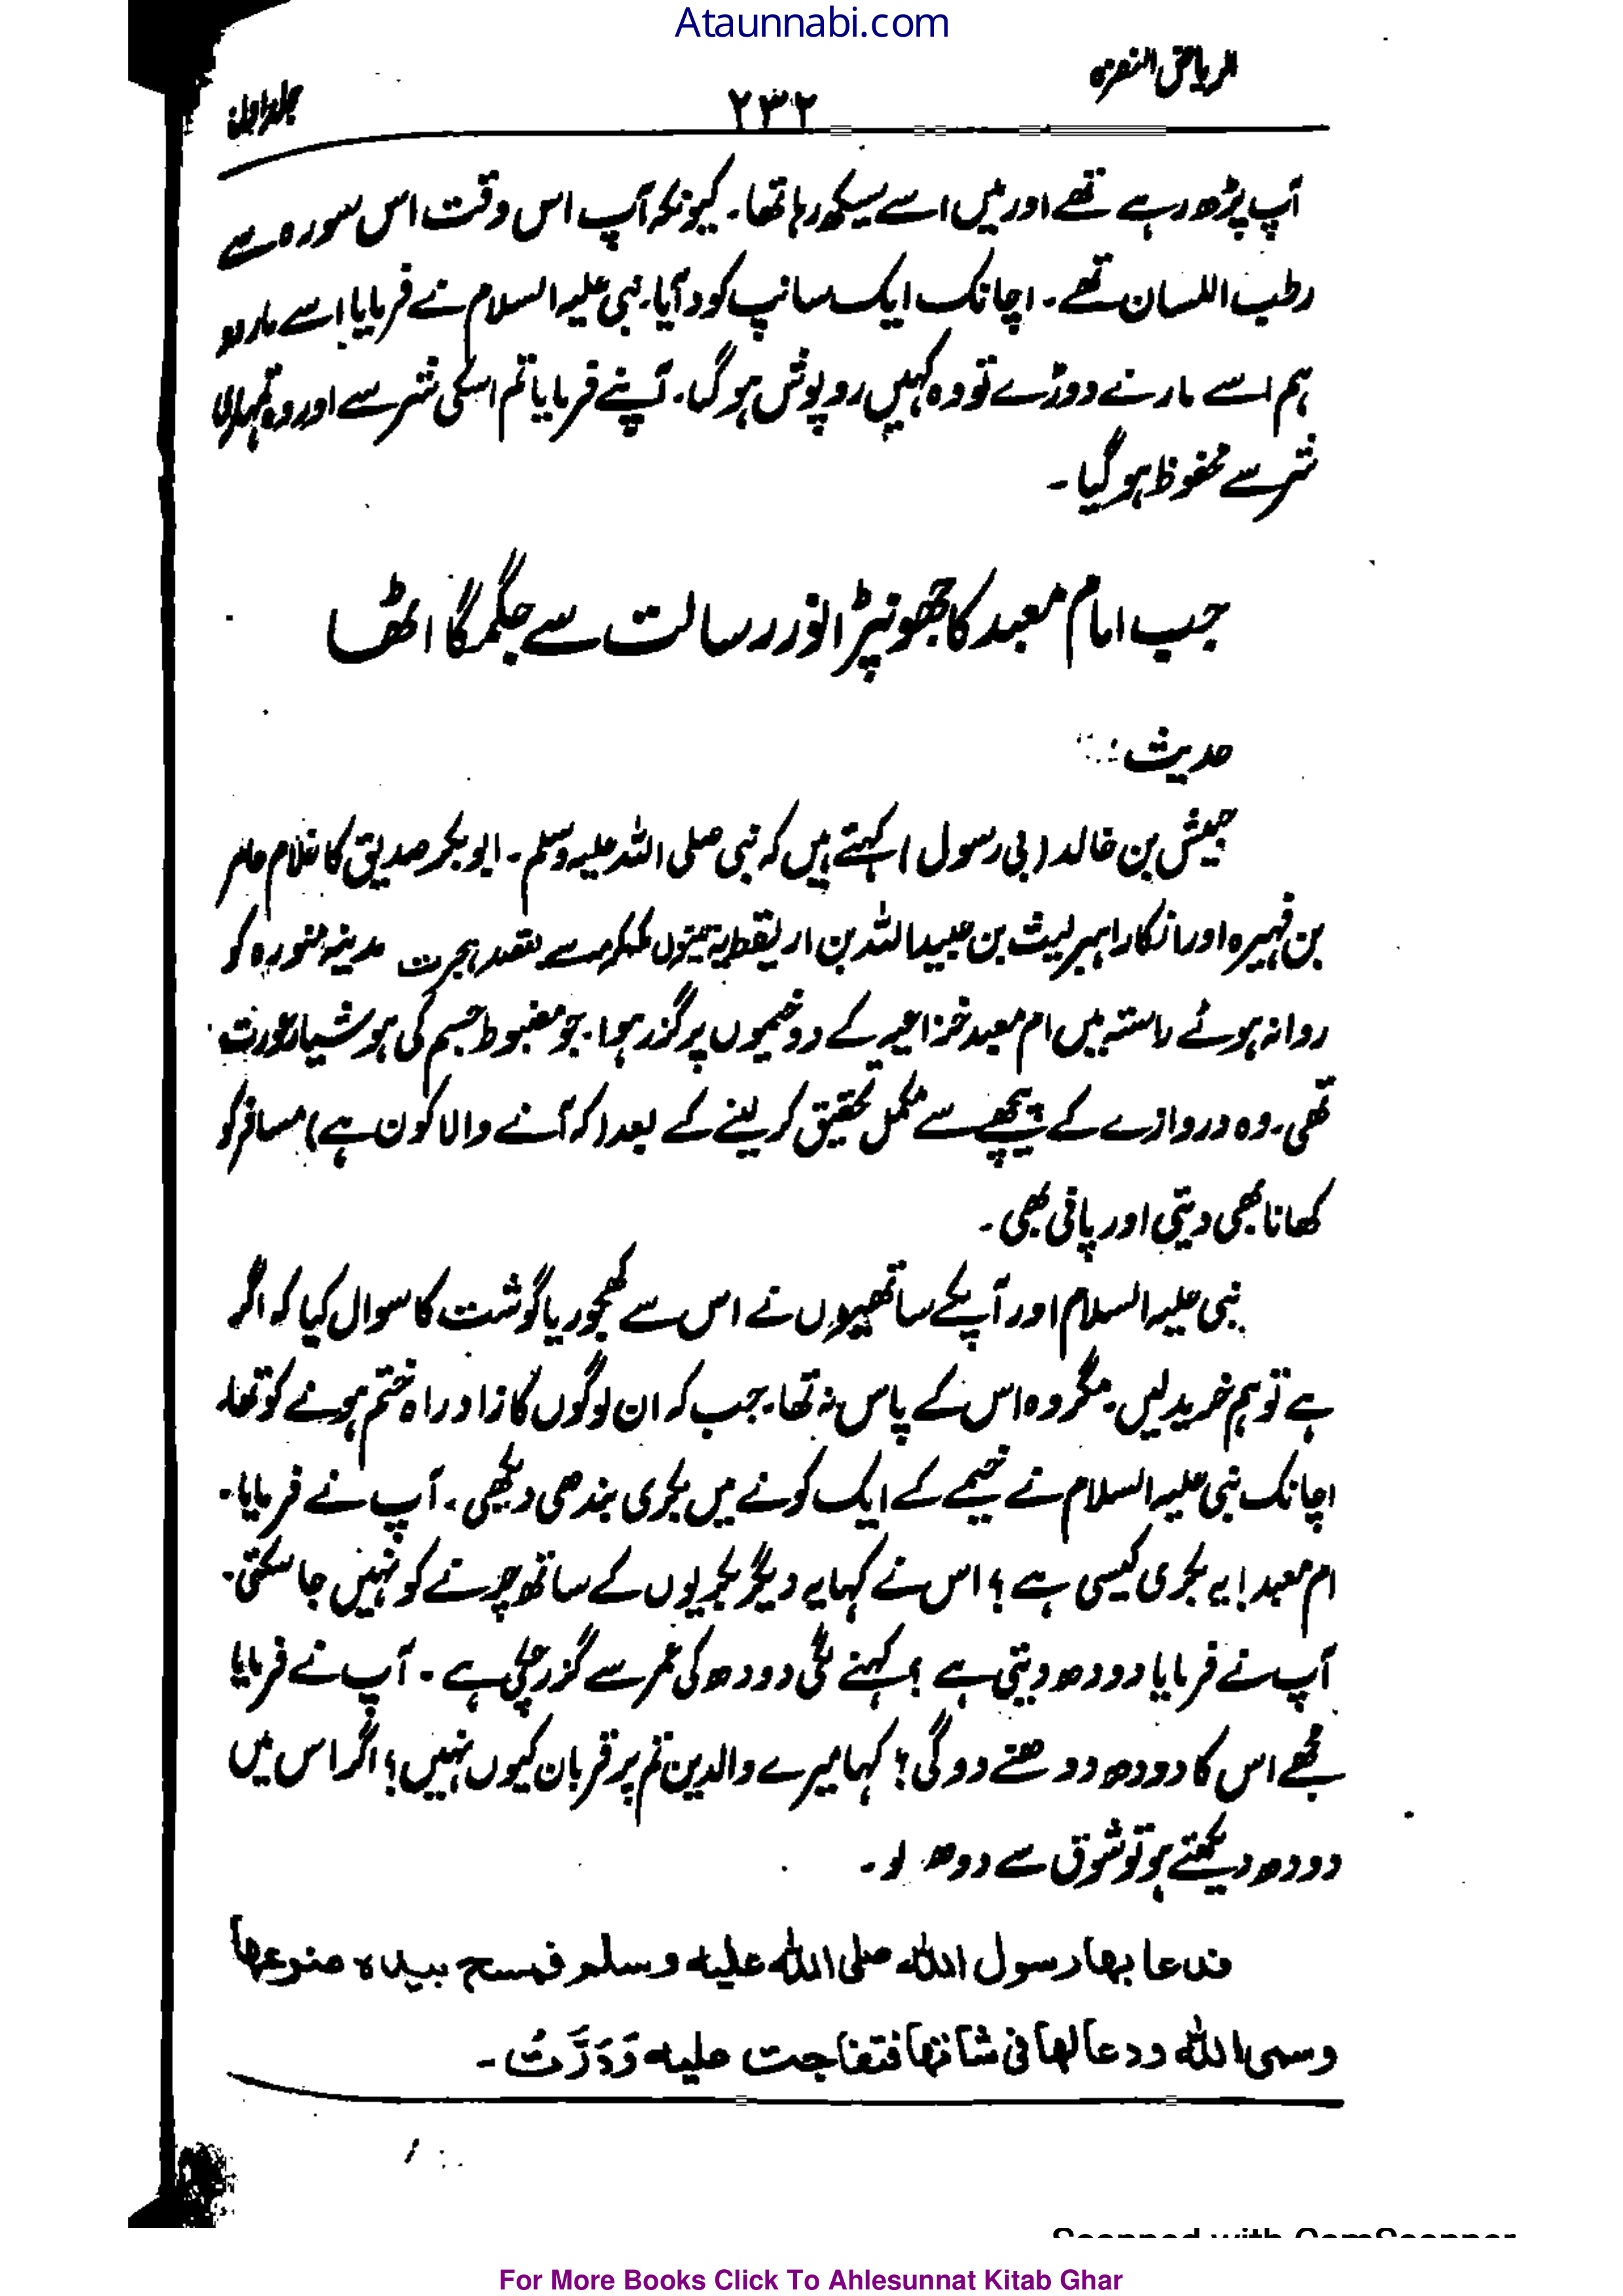 Ataunnabi.com
الریاض النضرہ
۲۳۲
جلد اول
آپ پڑھ رہے تھے اور میں اسے سیکھ رہا تھا۔ کیونکہ آپ اس وقت اس سورہ سے
رطب اللسان تھے۔ اچانک ایک سانپ کود آیا۔ نبی علیہ السلام نے فرمایا اسے مار دو
ہم اسے مارنے دوڑے تو وہ کہیں روپوش ہو گیا۔ آپنے فرمایا تم اسکی شر سے اور وہ تمہاری
شر سے محفوظ ہو گیا۔
جب امام معبد کا جھونپڑا نور رسالت سے جگمگا اٹھا
حدیث:
جیش بن خالد (بی رسول) کہتے ہیں کہ نبی صلی اللہ علیہ وسلم۔ ابو بکر صدیق کا غلام عامر
بن فہیرہ اور انکا راہبر لیث بن عبید اللہ بن اریقط یہ تینوں مکہ مکرمہ سے بقصد ہجرت مدینہ منورہ کو
روانہ ہوئے راستہ میں ام معبد خزاعیہ کے دو خیموں پر گزر ہوا۔ جو مضبوط جسم کی ہوشیار عورت
تھی۔ وہ دروازے کے پیچھے سے مکمل تحقیق کر لینے کے بعد (کہ آنے والا کون ہے) مسافر کو
کھانا بھی دیتی اور پانی بھی۔
نبی علیہ السلام اور آپکے ساتھیوں نے اس سے کھجور یا گوشت کا سوال کیا کہ اگر
ہے تو ہم خرید لیں۔ مگر وہ اس کے پاس نہ تھا۔ جب کہ ان لوگوں کا زاد راہ ختم ہونے کو تھا۔
اچانک نبی علیہ السلام نے خیمے کے ایک کونے میں بکری بندھی دیکھی۔ آپ نے فرمایا۔
ام معبد! یہ بکری کیسی ہے؟ اس نے کہا یہ دیگر بکریوں کے ساتھ چرنے کو نہیں جا سکتی۔
آپ نے فرمایا دودھ دیتی ہے؟ کہنے لگی دودھ کی عمر سے گزر چکی ہے۔ آپ نے فرمایا
مجھے اس کا دودھ دوھنے دو گی؟ کہا میرے والدین تم پر قربان کیوں نہیں؟ اگر اس میں
دودھ دیکھتے ہو تو شوق سے دوھ لو۔
فدعا بها رسول الله صلى الله عليه وسلم فمسح بيده ضرعها
وسمى الله ودعا لها فى شاتها فتفاجت عليه وَدَرَّتُ۔
For More Books Click To Ahlesunnat Kitab Ghar